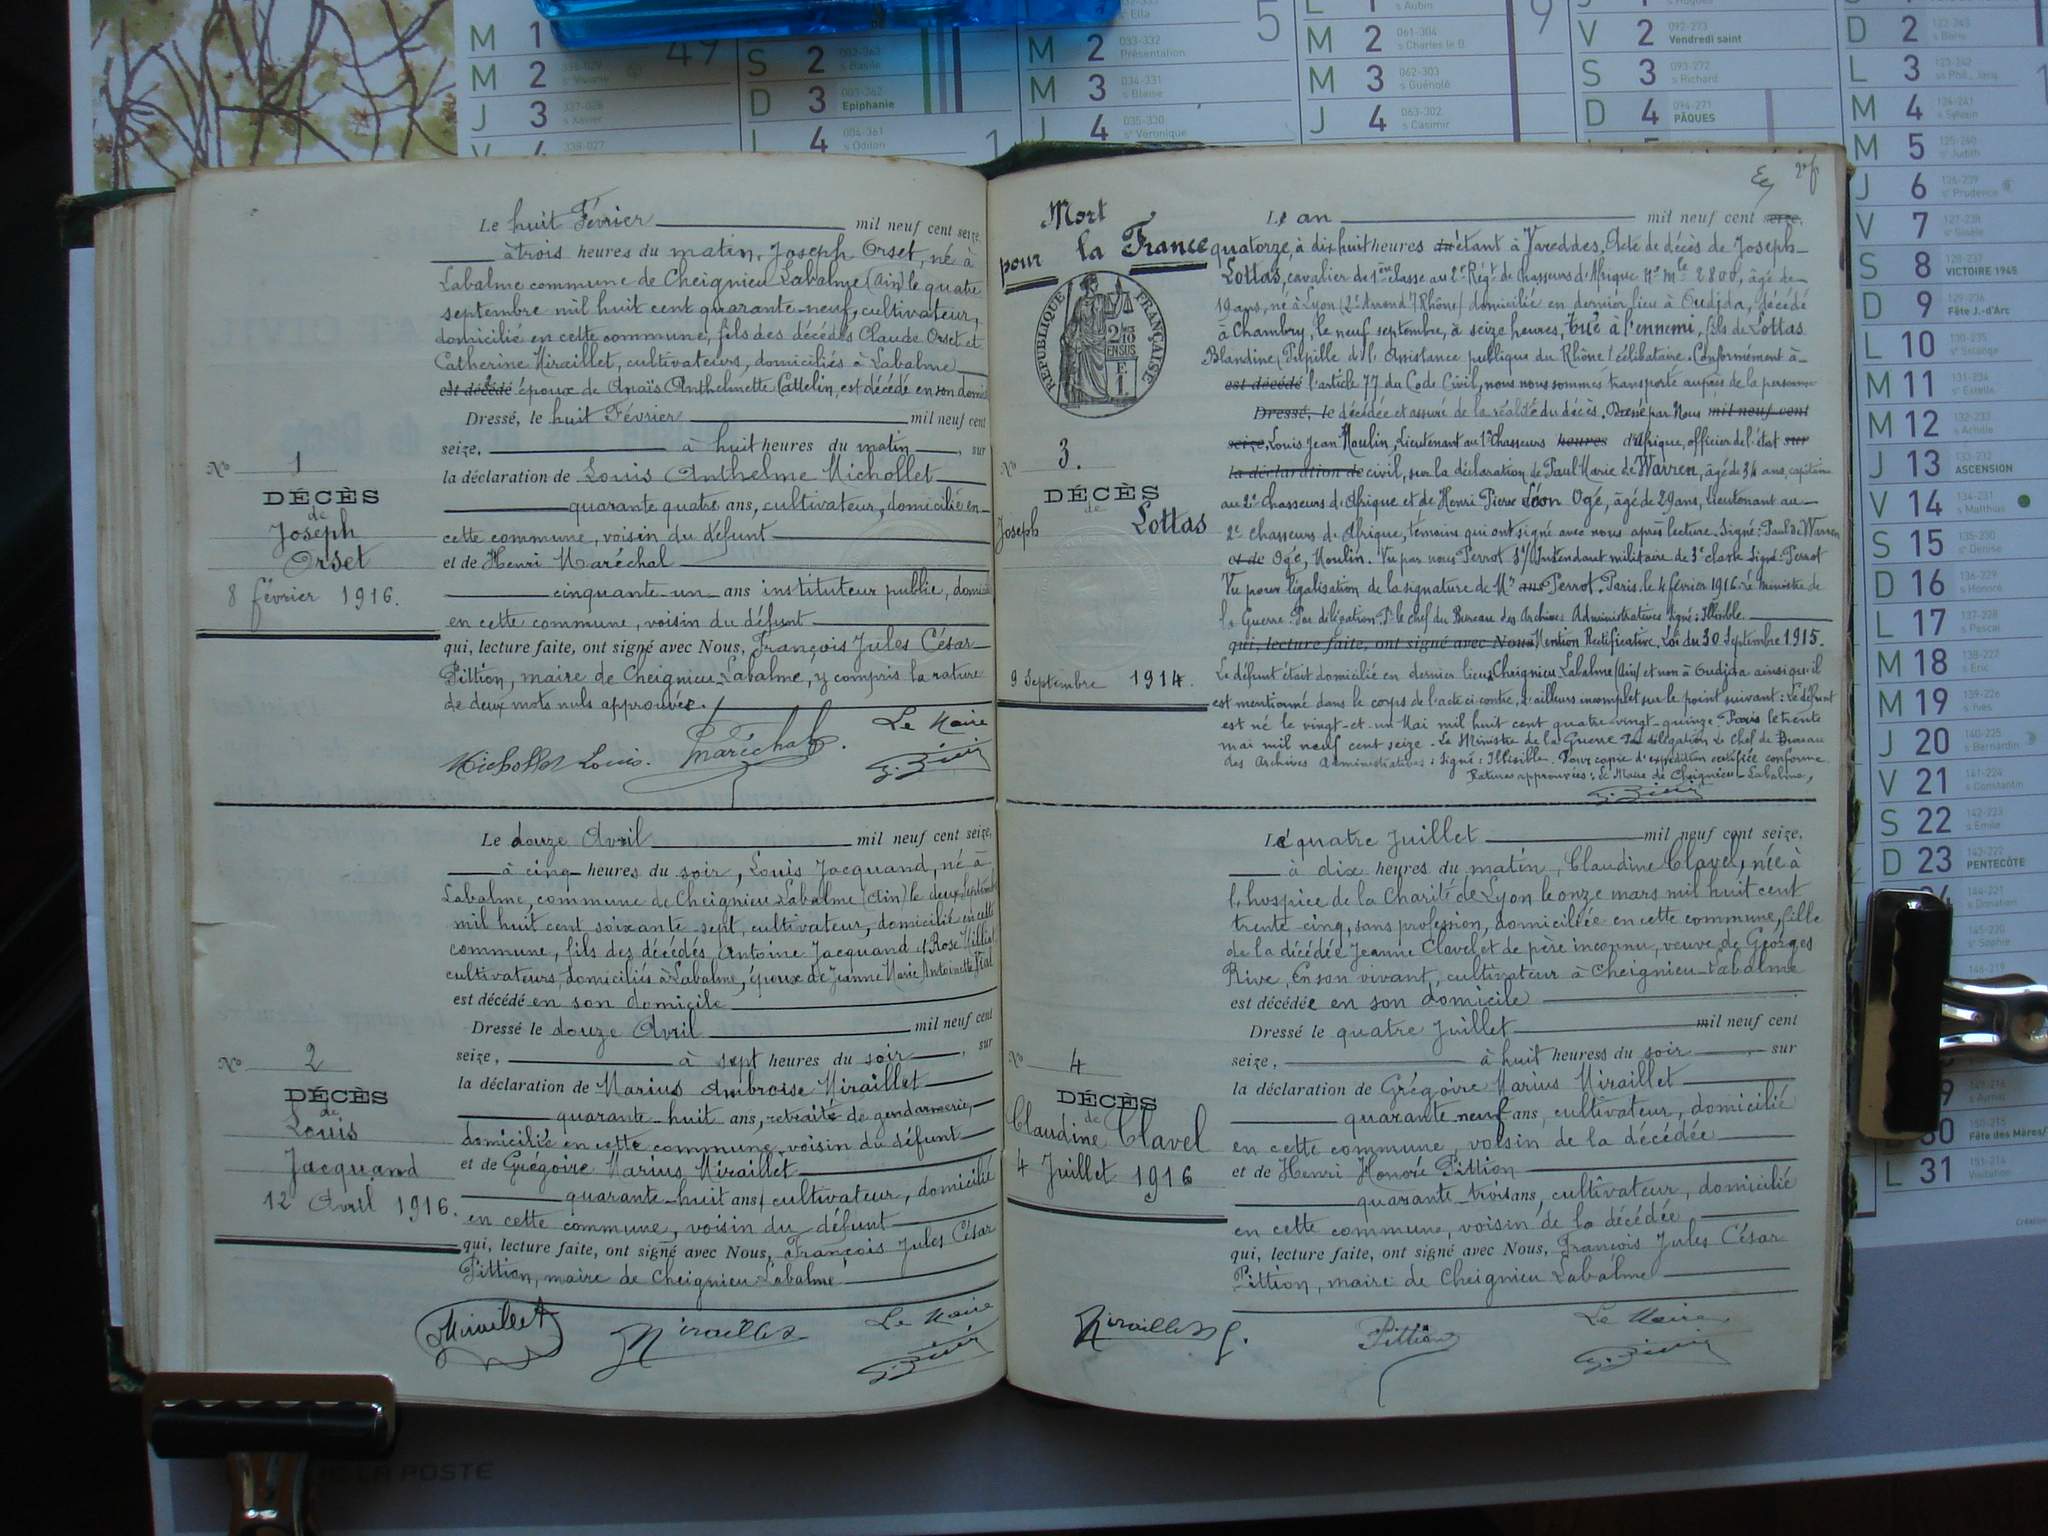 M 1
M 2
J 3
S 2
D 3 Epiphanie
L 4
M 2 Présentation
M 3 s Blaise
J 4 se Véronique
M 2 s Charles le B.
M 3 s Guénolé
J 4 s Casimir
V 2 Vendredi saint
S 3 s Richard
D 4 PÂQUES
D 2 s Boris
L 3 ss Phil., Jacq.
M 4 s Sylvain
M 5 se Judith
J 6 se Prudence
V 7 se Gisèle
S 8 VICTOIRE 1945
D 9 Fête J.-d'Arc
L 10 se Solange
M 11 se Estelle
M 12 s Achille
J 13 ASCENSION
V 14 s Matthias
S 15 se Denise
D 16 s Honoré
L 17 s Pascal
M 18 s Eric
M 19 s Yves
J 20 s Bernardin
V 21 s Constantin
S 22 s Emile
D 23 PENTECÔTE
30 Fête des Mères
L 31 Visitation
Le huit Février mil neuf cent seize,
à trois heures du matin, Joseph Orset, né à
Labalme commune de Cheignieu Labalme (Ain) le quatre
septembre mil huit cent quarante-neuf, cultivateur,
domicilié en cette commune, fils des décédés Claude Orset et
Catherine Miraillet, cultivateurs, domiciliés à Labalme
est décédé époux de Anaïs Anthelmette Cattelin, est décédé en son domicile
Dressé, le huit Février mil neuf cent
seize, à huit heures du matin, sur
la déclaration de Louis Anthelme Michollet
quarante quatre ans, cultivateur, domicilié en
cette commune, voisin du défunt
et de Henri Maréchal
cinquante-un ans instituteur public, domicilié
en cette commune, voisin du défunt
qui, lecture faite, ont signé avec Nous, François Jules César
Pittion, maire de Cheignieu-Labalme, y compris la rature
de deux mots nuls approuvée.
Michollet Louis. Maréchal. Le Maire
No 1
DÉCÈS
de
Joseph
Orset
8 février 1916.
Le douze Avril mil neuf cent seize,
à cinq heures du soir, Louis Jacquand, né à
Labalme, commune de Cheignieu-Labalme (Ain) le deux Septembre
mil huit cent soixante-sept, cultivateur, domicilié en cette
commune, fils des décédés Antoine Jacquand et Rose Milliet
cultivateurs domiciliés à Labalme, époux de Jeanne Marie Antoinette
est décédé en son domicile
Dressé le douze Avril mil neuf cent
seize, à sept heures du soir, sur
la déclaration de Marius Ambroise Miraillet
quarante-huit ans, retraité de gendarmerie,
domicilié en cette commune, voisin du défunt
et de Grégoire Marius Miraillet
quarante-huit ans, cultivateur, domicilié
en cette commune, voisin du défunt
qui, lecture faite, ont signé avec Nous, François Jules César
Pittion, maire de Cheignieu-Labalme
Miraillet Miraillet Le Maire
No 2
DÉCÈS
de
Louis
Jacquand
12 Avril 1916.
2e f
Mort
pour la France
RÉPUBLIQUE FRANÇAISE
Le an mil neuf cent seize.
quatorze, à dix huit heures étant à Vareddes. Acte de décès de Joseph
Lottas, cavalier de 1ère classe au 2e Régt de chasseurs d'Afrique No mle 2800, âgé de
19 ans, né à Lyon (2e Arrond) (Rhône) domicilié en dernier lieu à Oudjda, décédé
à Chambry, le neuf septembre, à seize heures, tué à l'ennemi, fils de Lottas
Blandine (Pupille de l'Assistance publique du Rhône) célibataire. Conformément à
est décédé l'article 77 du Code Civil, nous nous sommes transporté auprès de la personne
Dressé, le décédée et assuré de la réalité du décès. Dressé par Nous mil neuf cent
seize, Louis Jean Moulin, Lieutenant au 2e Chasseurs heures d'Afrique, officier de l'état sur
la déclaration de civil, sur la déclaration de Paul Marie de Warren, âgé de 34 ans, capitaine
au 2e chasseurs d'Afrique et de Henri Pierre Léon Ogé, âgé de 29 ans, lieutenant au
2e chasseurs d'Afrique, témoins qui ont signé avec nous après lecture. Signé: Paul de Warren
et de Ogé, Moulin. Vu par nous Perrot S/Intendant militaire de 3e classe Signé: Perrot
Vu pour légalisation de la signature de Mr ans Perrot. Paris, le 4 février 1916. Le ministre de
la Guerre. Par délégation. Pr le chef du Bureau des Archives Administratives signé: Illisible.
qui, lecture faite, ont signé avec Nous Mention Rectificative. Loi du 30 Septembre 1915.
Le défunt était domicilié en dernier lieu à Cheignieu Labalme (Ain) et non à Oudjda ainsi qu'il
est mentionné dans le corps de l'acte ci-contre, d'ailleurs incomplet sur le point suivant: Le défunt
est né le vingt-et-un Mai mil huit cent quatre-vingt-quinze. Paris le trente
mai mil neuf cent seize. Le Ministre de la Guerre Par délégation Le Chef de Bureau
des Archives Administratives: Signé: Illisible. Pour copie d'expédition certifiée conforme
Ratures approuvées: Le Maire de Cheignieu-Labalme,
No 3.
DÉCÈS
de
Joseph Lottas
9 Septembre 1914.
Le quatre Juillet mil neuf cent seize,
à dix heures du matin, Claudine Clavel, née à
l'hospice de la Charité de Lyon le onze mars mil huit cent
trente-cinq, sans profession, domiciliée en cette commune, fille
de la décédée Jeanne Clavel et de père inconnu, veuve de Georges
Rive, En son vivant, cultivateur à Cheignieu-Labalme
est décédée en son domicile
Dressé le quatre Juillet mil neuf cent
seize, à huit heures du soir, sur
la déclaration de Grégoire Marius Miraillet
quarante-neuf ans, cultivateur, domicilié
en cette commune, voisin de la décédée
et de Henri Honoré Pittion
quarante-trois ans, cultivateur, domicilié
en cette commune, voisin de la décédée
qui, lecture faite, ont signé avec Nous, François Jules César
Pittion, maire de Cheignieu Labalme
Miraillet G. Pittion Le Maire
No 4
DÉCÈS
de
Claudine Clavel
4 Juillet 1916
LA POSTE